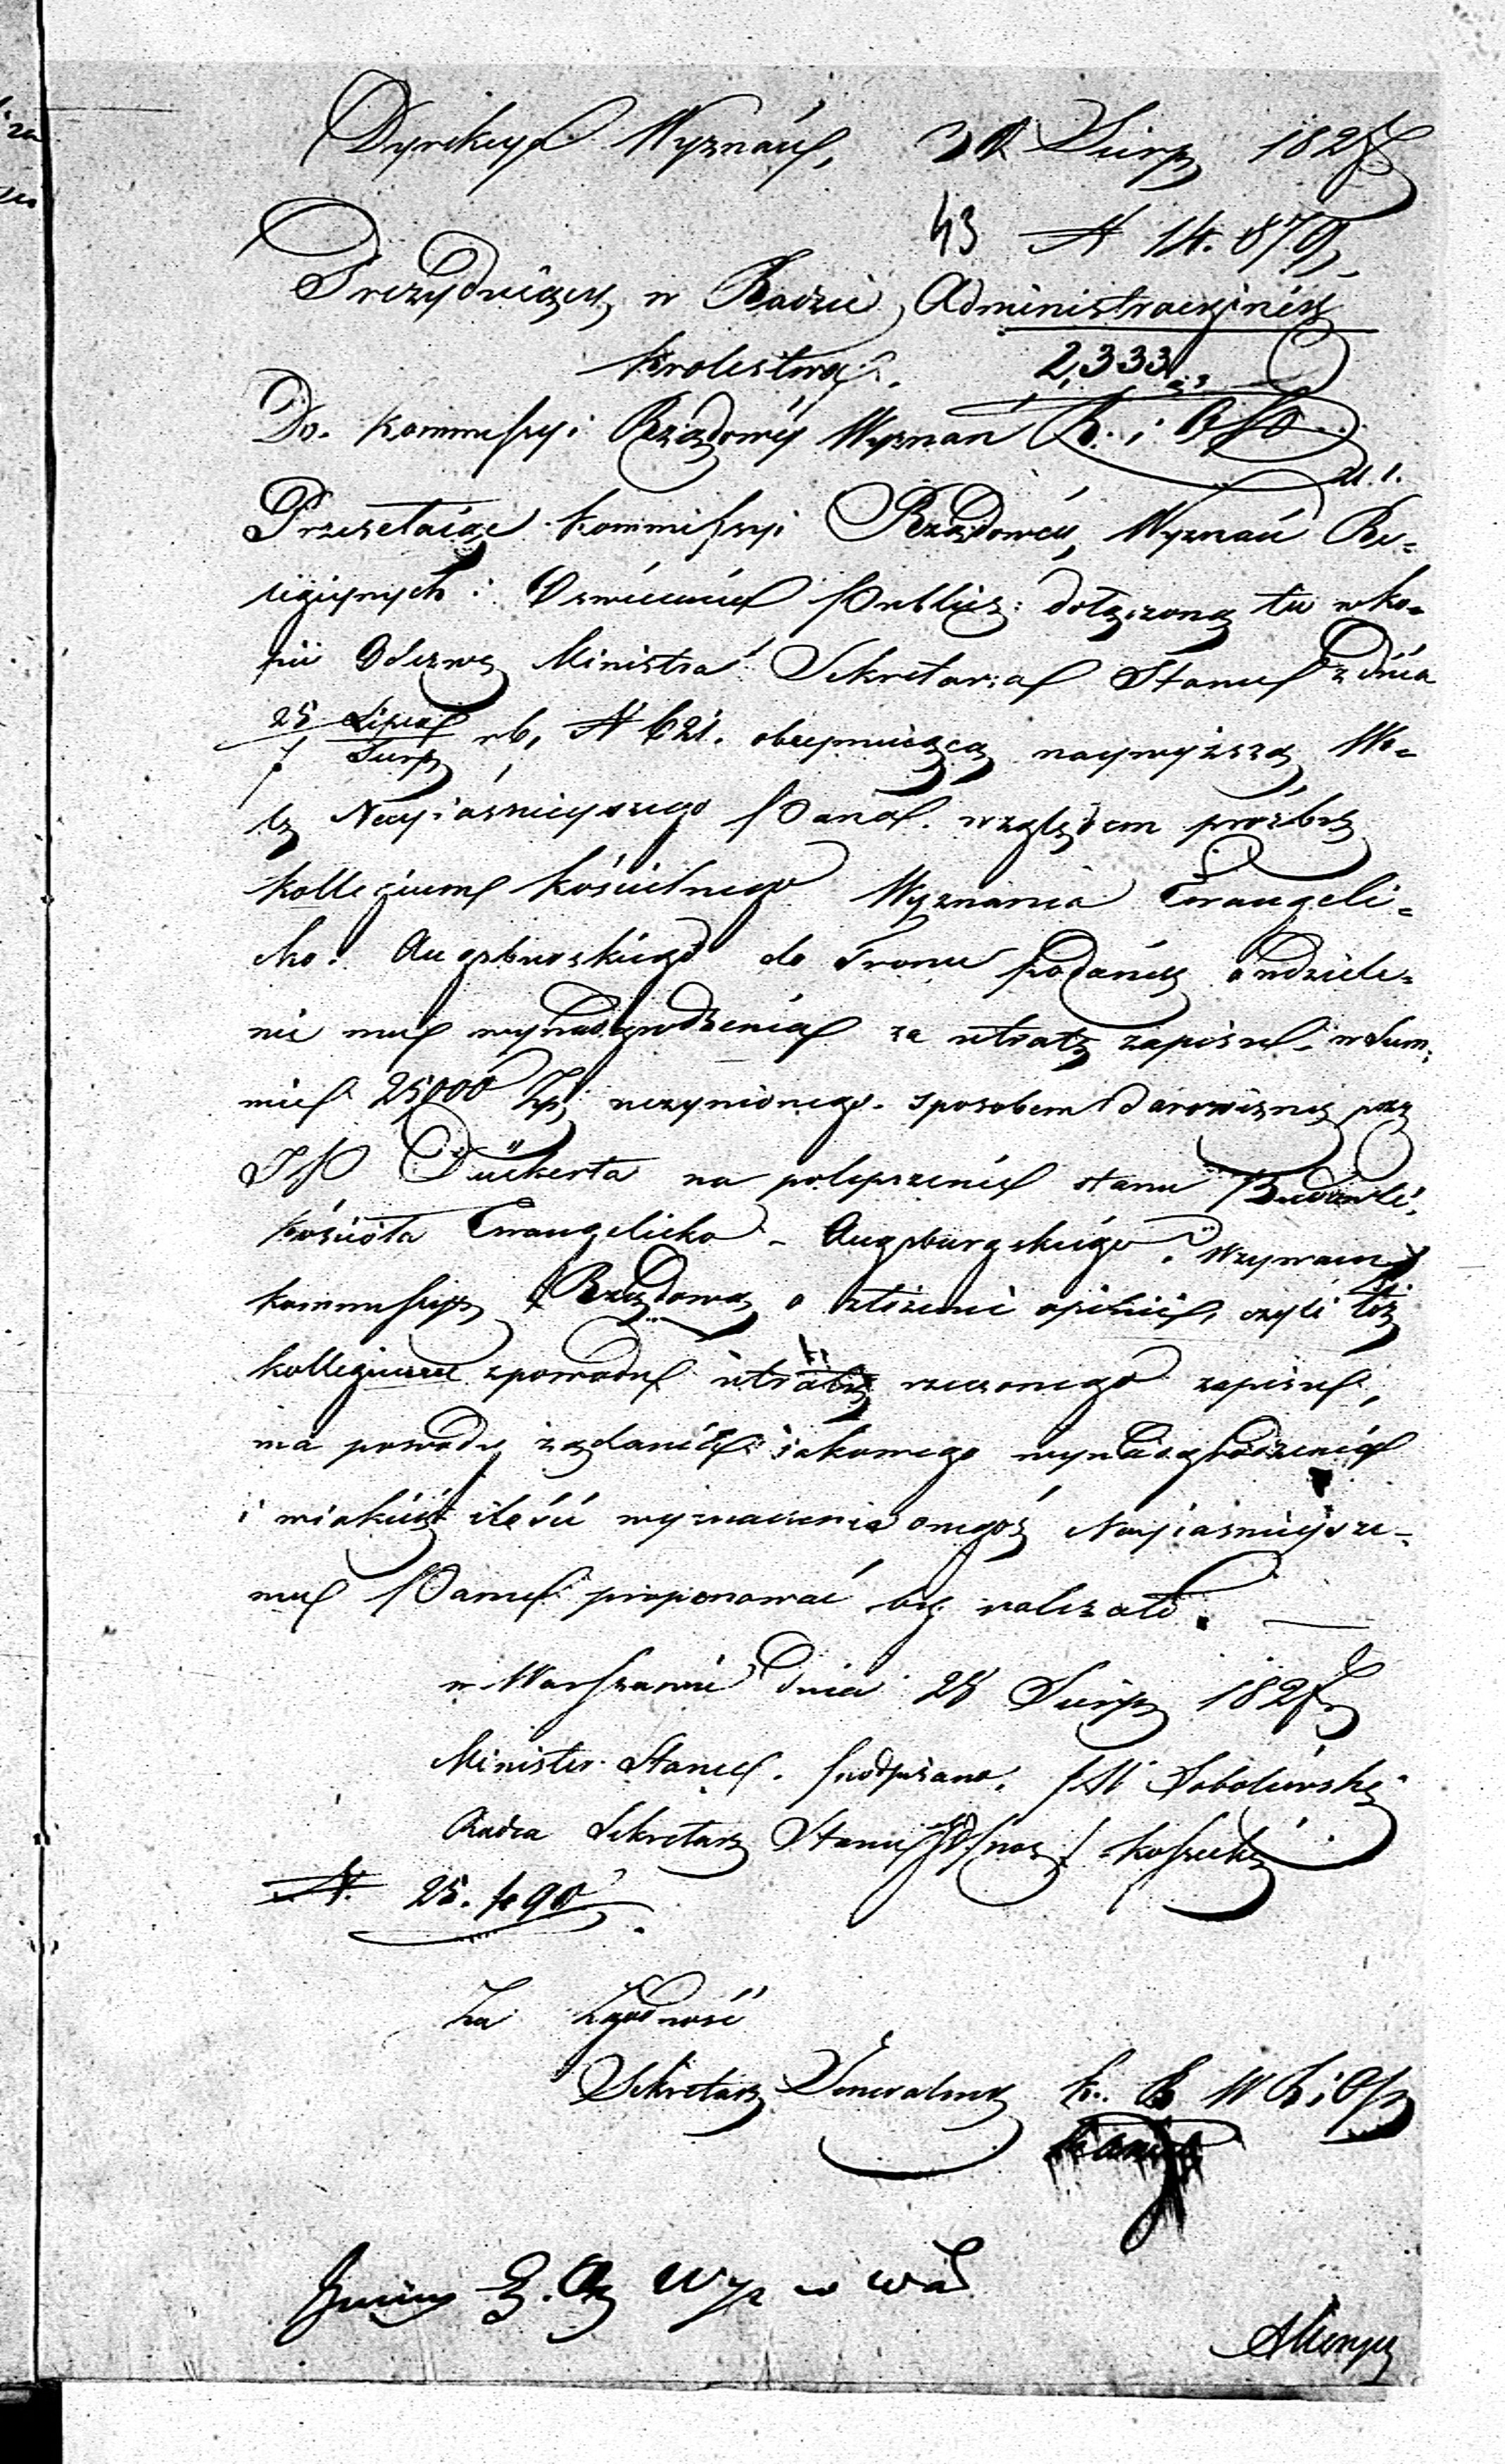 Dyrekcya Wyznań, 30 Sierp 1827
43 N 14.879
Prezyduiący w Radzie Administracyiney
Krolestwa.
2,333
Do Kommissyi Rządowéy Wyznan R. i O
Przesełaiąc Kommissyi Rządowéy Wyznań Re-
ligiynych i Oswiecenia Public: dołączoną tu w ko-
pii Odezwę Ministra Sekretarza Stanu z dnia
25 Lipca
7 Sierp rb, N 621. obeymuiącą naywyższą Wo-
lę Nayiasnieyszego Pana. względem prośby
Kollegium Kościelnego Wyznania Ewangeli-
cko. Augsburskiego do Tronu podanéy o udziele-
nie mu wynadgrodzenia za utratę zapisu, w Sum-
mie 25,000 Złp uczynionego. sposobem darowizny przz
JP Dückerta na polepszenie stanu Budowli,
Kościoła Ewangelicko - Augsburgskiego. Wzywam
Kommissyę Rządową o złożenie opinii, czyli toż
Kollegium z powodu utraty rzeczonego zapisu,
ma powody żądania iakowego wynadgrodzenia
i w iakiéy ilości wyznaczenie onegoż Nayiasnieysze-
mu Panu proponować by należało.
w Warszawie dnia 28 Sierp 1827
Minister Stanu. podpisano. Sobolewski
Radca Sekretarz Stanu Kossecki
N. 25.490
Za Zgodność
Sekretarz Generalny K. R W R i O P